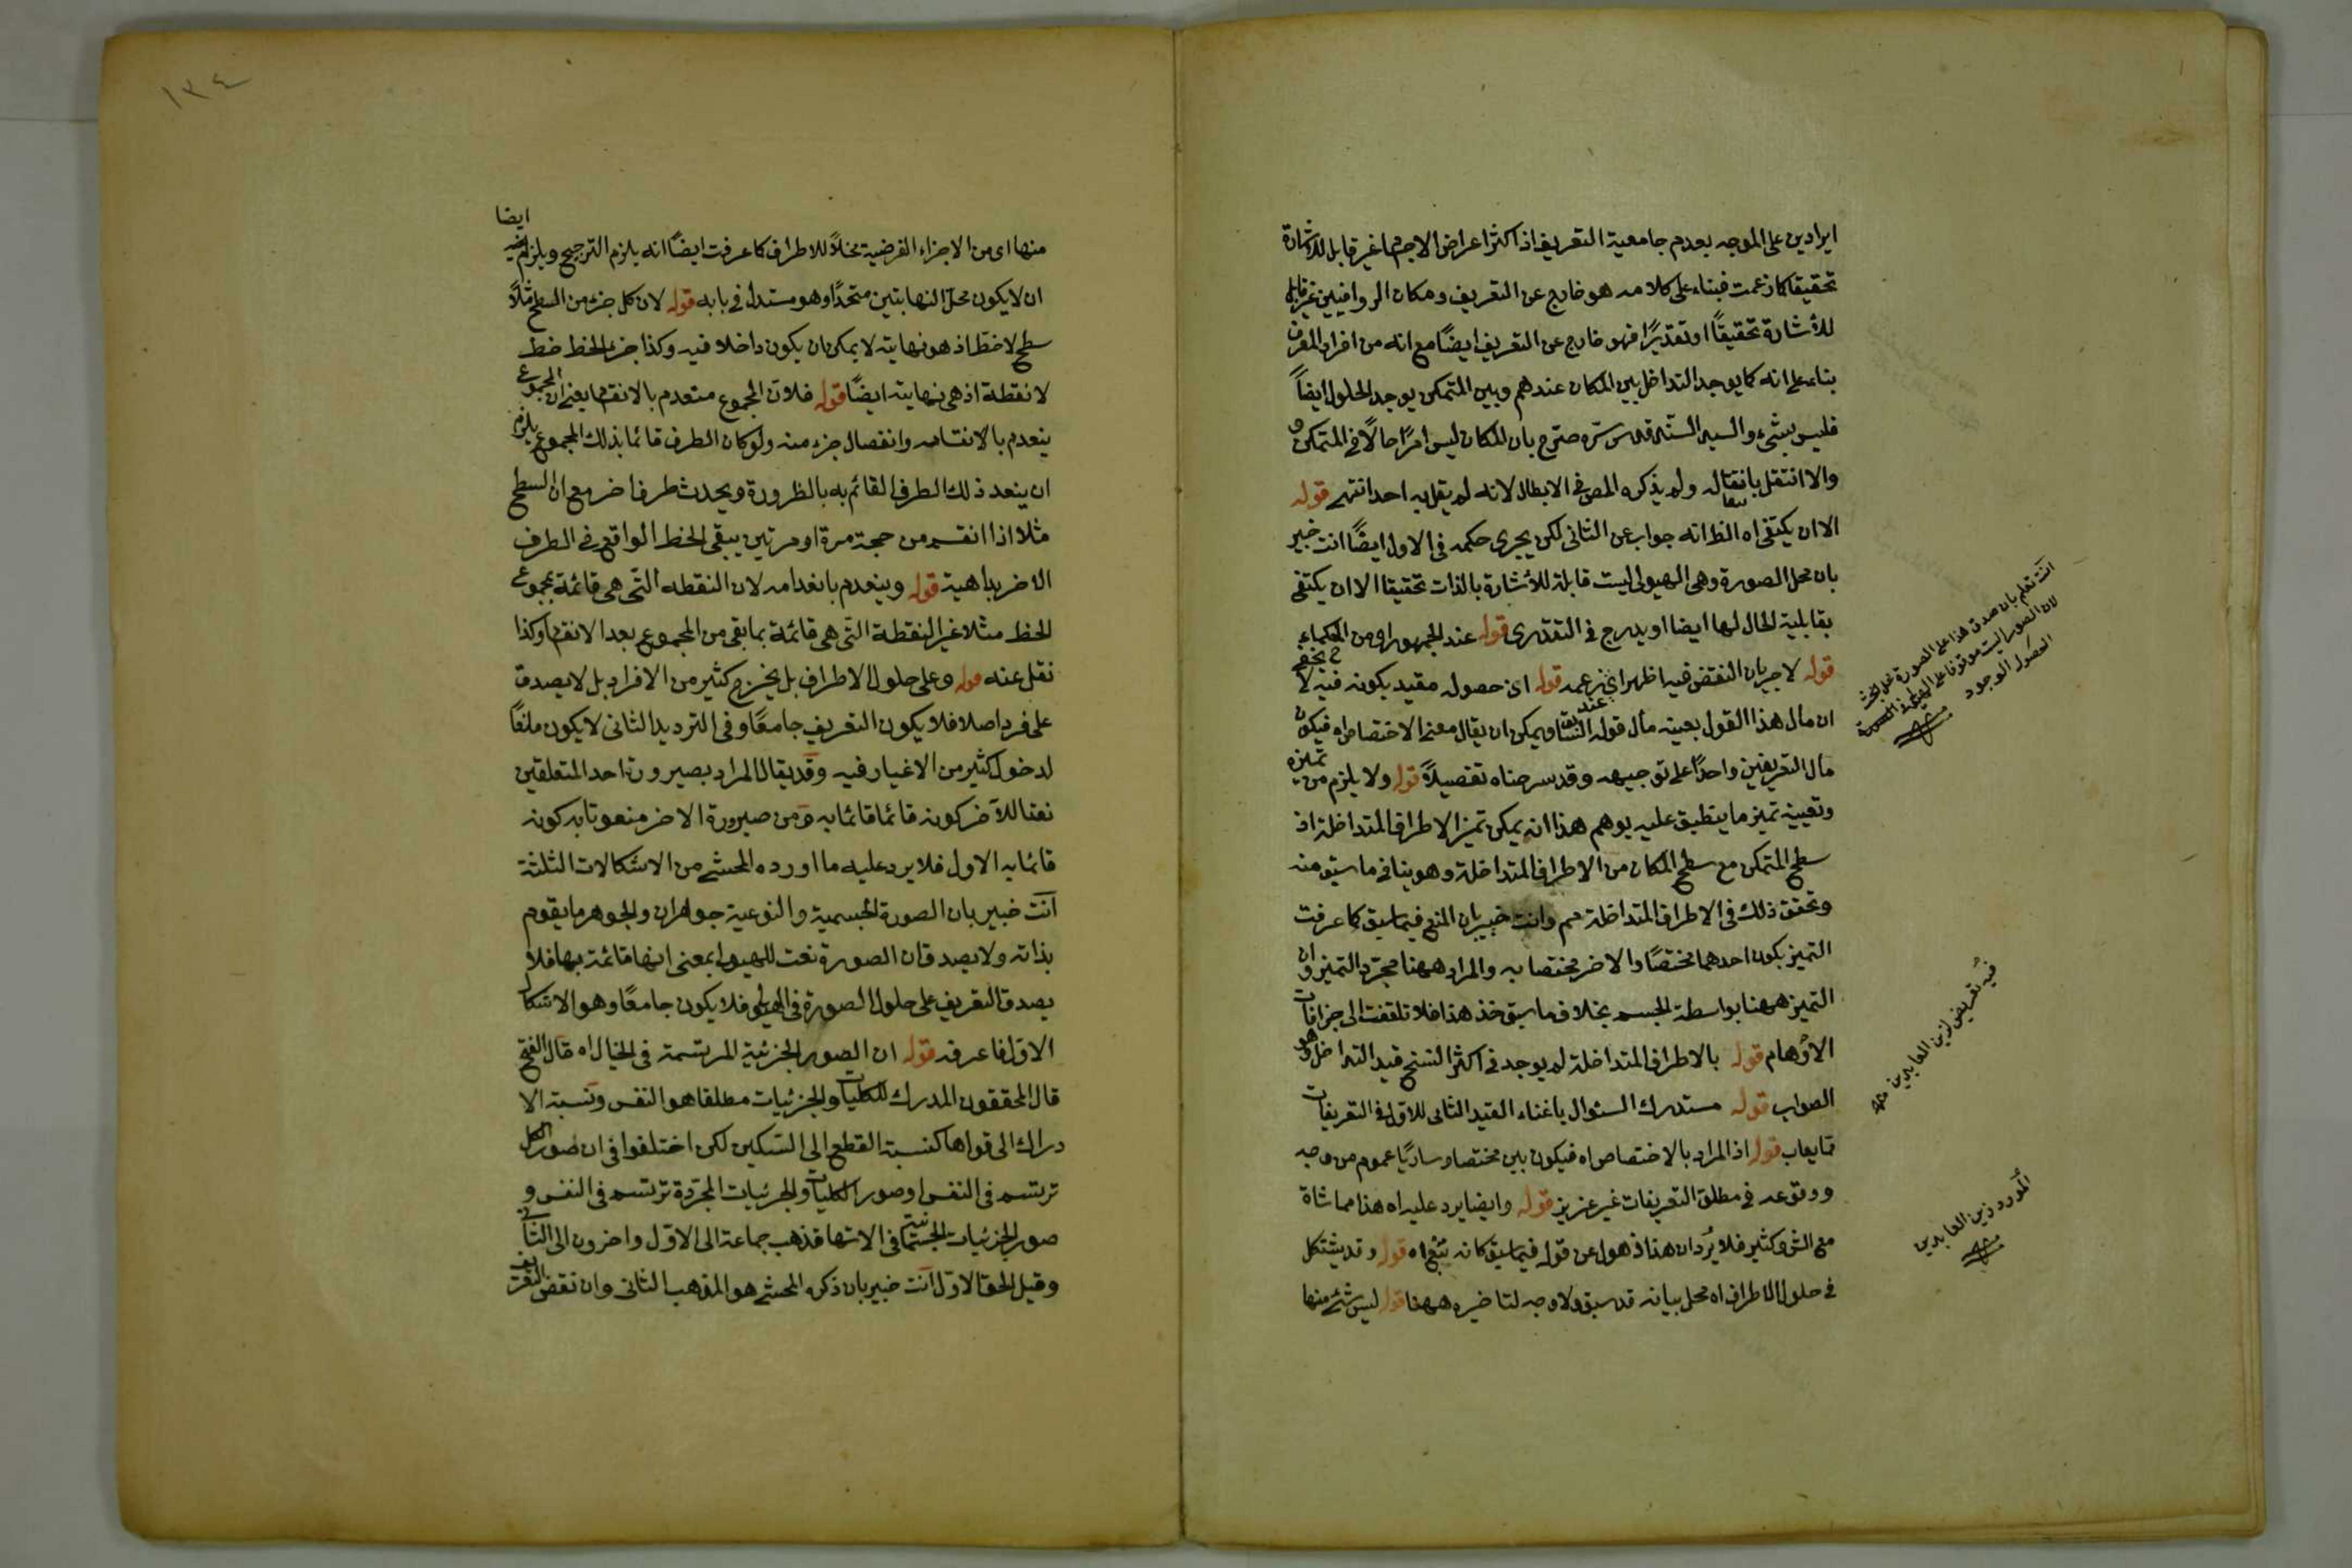 ايرادين على الموجه بعدم جامعية التعريف اذ اكثر اعراض الاجسام غير قابل للاشارة
تحقيقا كما زعمت فبناء على كلامه هو خارج عن التعريف ومكان الرواقيين غير قابل
للأشارة تحقيقًا او تقديرًا فهو خارج عن التعريف ايضًا مع انه من افراد المعرف
بناء على انه كما يوجد التداخل بين المكان عندهم وبين المتمكن يوجد الحلول ايضاً
فليس بشيء والسيد السند قدس سرّه صرّح بان المكان ليس امرًا حالًا في المتمكن و
والا انتقل بانتقاله ولم يذكره المص في الابطال لانه لم يقل به احد انتهى قوله
الا ان يكتفى اه الظ انه جواب عن الثانى لكن يجرى حكمه فى الاول ايضًا انت خبير
بان محل الصورة وهى الهيولى ليست قابلة للأشارة بالذات تحقيقا الا ان يكتفى
بقابلية الحال لها ايضا او يدرج فى التقديرى قوله عند الجمهور اى من الحكماء
قوله لا جريان النقض فيه اظهر اى بزعمه قوله اى حصوله مقيد بكونه فيه لا يخفى
ان مأل هذا القول بعينه مأل قوله ويمكن ان يقال معنى الاختصاص اه فيكون
مأل التعريفين واحدًا على توجيهه وقد سرحناه تفصيلاً قوله ولا يلزم من تميزه
وتعيينه تميز ما ينطبق عليه يوهم هذا انه يمكن تميز الاطراف المتداخلة اذ
سطح المتمكن مع سطح المكان من الاطراف المتداخلة وهو ينافى ما سبق منه
وتحقق ذلك فى الاطراف المتداخلة مم وانت خبير بان المنع فيما سبق كما عرفت
التميز بكون احدهما مختصًا والاخر مختصا به والمراد ههنا مجرّد التميز وان
التميز ههنا بواسطة الجسم بخلاف ما سبق خذ هذا فلا تلتفت الى جزافات
الاوهام قوله بالاطراف المتداخلة لم يوجد فى اكثر النسخ قيد التداخل وهو
الصواب قوله مستدرك السئوال باغناء القيد الثانى للاول فى التعريفات
مما يعاب قوله اذ المراد بالاختصاص اه فيكون بين مختصا وساريًا عموم من وجه
ووقوعه فى مطلق التعريفات غير عزيز قوله وايضا يرد عليه اه هذا مماشاة
مع الش وكثير فلا يرد ان هذا ذهول عن قوله فيما سبق كانه تبع اه قوله وقد يشتكل
فى حلول الاطراف اه محل بيانه قد سبق ولا وجه لتاخيره ههنا قوله ليس شئ منها
انت تعلم بان صدق هذا على الصورة محل بحث
لان الصور ليست موقوفا على الهيولى
الوجود
فيه تعريض لزين العابدين منه
المورد زين العابدين
١٣٤
منها اى من الاجزاء الفرضية محلاً للاطراف كما عرفت ايضًا انه يلزم الترجيح ويلزم فيه ايضا
ان لا يكون محل النهايتين متحدًا وهو مستدل فى بابه قوله لان كل جزء من السطح مثلاً
سطح لا خط اذ هو نهايته لا يمكن ان يكون داخلا فيه وكذا جزء الخط خط
لا نقطة اذ هى نهايته ايضًا قوله فلان المجموع منعدم بالانقسام يعنى ان المجموع
ينعدم بالانقسام وانفصال جزء منه ولو كان الطرف قائما بذلك المجموع يلزم
ان ينعد ذلك الطرف القائم به بالظرورة ويحدث طرف اخر مع ان السطح
مثلا اذا انقسم من جهة مرة او مرتين يبقى الخط الواقع فى الطرف
الاخر بداهية قوله وينعدم بانعدامه لان النقطه التى هى قائمة بمجموع
الخط مثلا غير النقطة التى هى قائمة بما بقى من المجموع بعد الانقسام وكذا
نقل عنه قوله وعلى حلول الاطراف بل يخرج كثير من الافراد بل لا يصدق
على فرد اصلا فلا يكون التعريف جامعًا وفى الترديد الثانى لا يكون مانعًا
لدخول كثير من الاغيار فيه وقد يقال المراد بصيرورة احد المتعلقين
نعتا للآخر كونه قائما قائما به ومن صيرورة الاخر منعوتا به كونه
قائما به الاول فلا يرد عليه ما اورده المحشى من الاشكالات الثلثة
انت خبير بان الصورة الجسمية والنوعية جوهران والجوهر ما يقوم
بذاته ولا يصدق ان الصورة نعت للهيولى بمعنى انها قائمة بها فلا
يصدق التعريف على حلول الصورة فى الهيولى فلا يكون جامعًا وهو الاشكال
الاول فاعرفه قوله ان الصور الجزئية المرتسمة فى الخيال اه قال الفتح
قال المحققون المدرك للكليات والجزئيات مطلقا هو النفس ونسبة الا
دراك الى قواها كنسبة القطع الى السكين لكن اختلفوا فى ان صور الكل
ترتسم فى النفس او صور الكليات والجزئيات المجرّدة ترتسم فى النفس و
صور الجزئيات الجسمانية فى الاتها فذهب جماعة الى الاوّل واخرون الى الثانى
وقيل الحق الاوّل انت خبير بان ذكره المحشى هو المذهب الثانى وان نقض التعريف